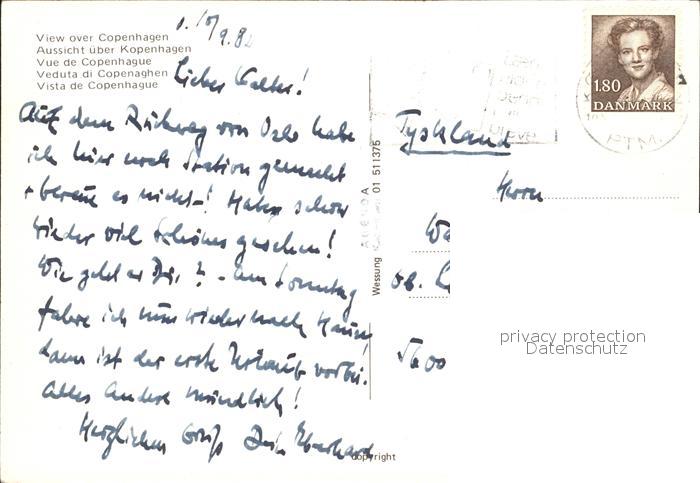 View over Copenhagen
Aussicht über Kopenhagen
Vue de Copenhague
Veduta di Copenaghen
Vista de Copenhague
9.82
Lieber Walter!
Auf dem Rückweg von Oslo habe
ich hier noch Station gemacht
+ bereue es nicht! Habe schon
wieder viel Schönes gesehen!
Wie geht es Dir? - Am Sonntag
fahre ich nun wieder nach Haus,
dann ist der erste Urlaub vorbei.
Alles Andere mündlich!
Herzlichen Gruß Dein Eberhard
1.80
DANMARK
breve
PTM.
Tyskland
Herrn
Wa
ob. L
5600
Wessung
01 511375
copyright
privacy protection
Datenschutz